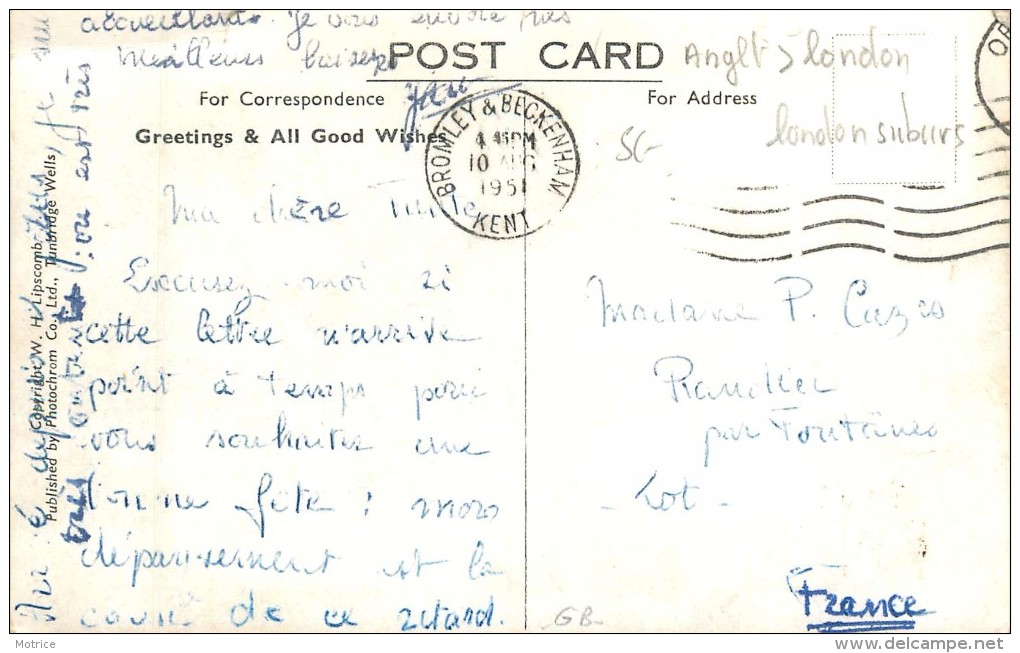 POST CARD
For Correspondence
For Address
Greetings & All Good Wishes
BROMLEY & BECKENHAM
4 45 PM
10 AUG
1951
KENT
Anglt > london
london suburs
SG
Ma chère
Excusez-moi si
cette lettre n'arrive
point à temps pour
vous souhaiter une
bonne fête : mon
dépaysement est la
cause de ce retard.
depuis
très contente
est très
accueillante. Je vous envoie mes
meilleurs baisers
Madame P. Cazes
par
Lot
France
GB
Copyright W. H. Lipscomb.
Published by Photochrom Co., Ltd., Tunbridge Wells,
Motrice
www.delcampe.net